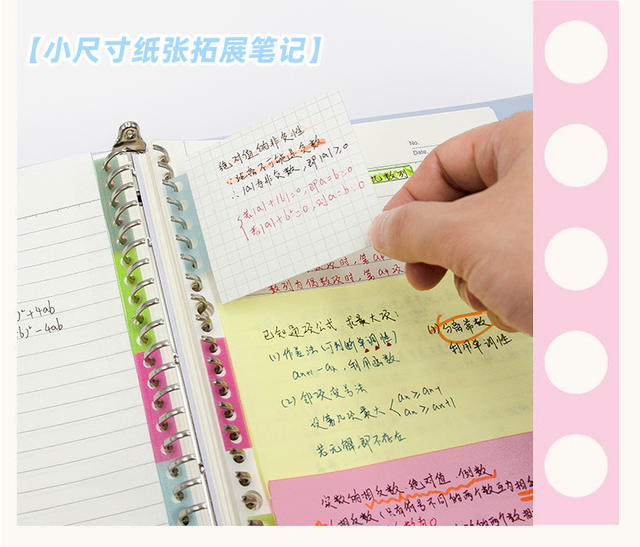 【小尺寸纸张拓展笔记】
No.
Date.
绝对值的非负性
∵距离不可能是负数
∴|a|为非负数,即|a|≥0
若|a|+|b|=0,即a=b=0
若|a|+b²=0,则a=b=0
)²+4ab
b)²-4ab
数列为偶数项时,第an
已知通项公式 求最大项:
(1)作差法(可判断单调性)
an+1-an,利用函数
(3)分离常数
利用单调性
(2)邻项变号法
设第n项最大
an≥an-1
an≥an+1
若无解,即不存在
实数的相反数 绝对值 倒数
相反数(只有符号不同的两个数互为相反